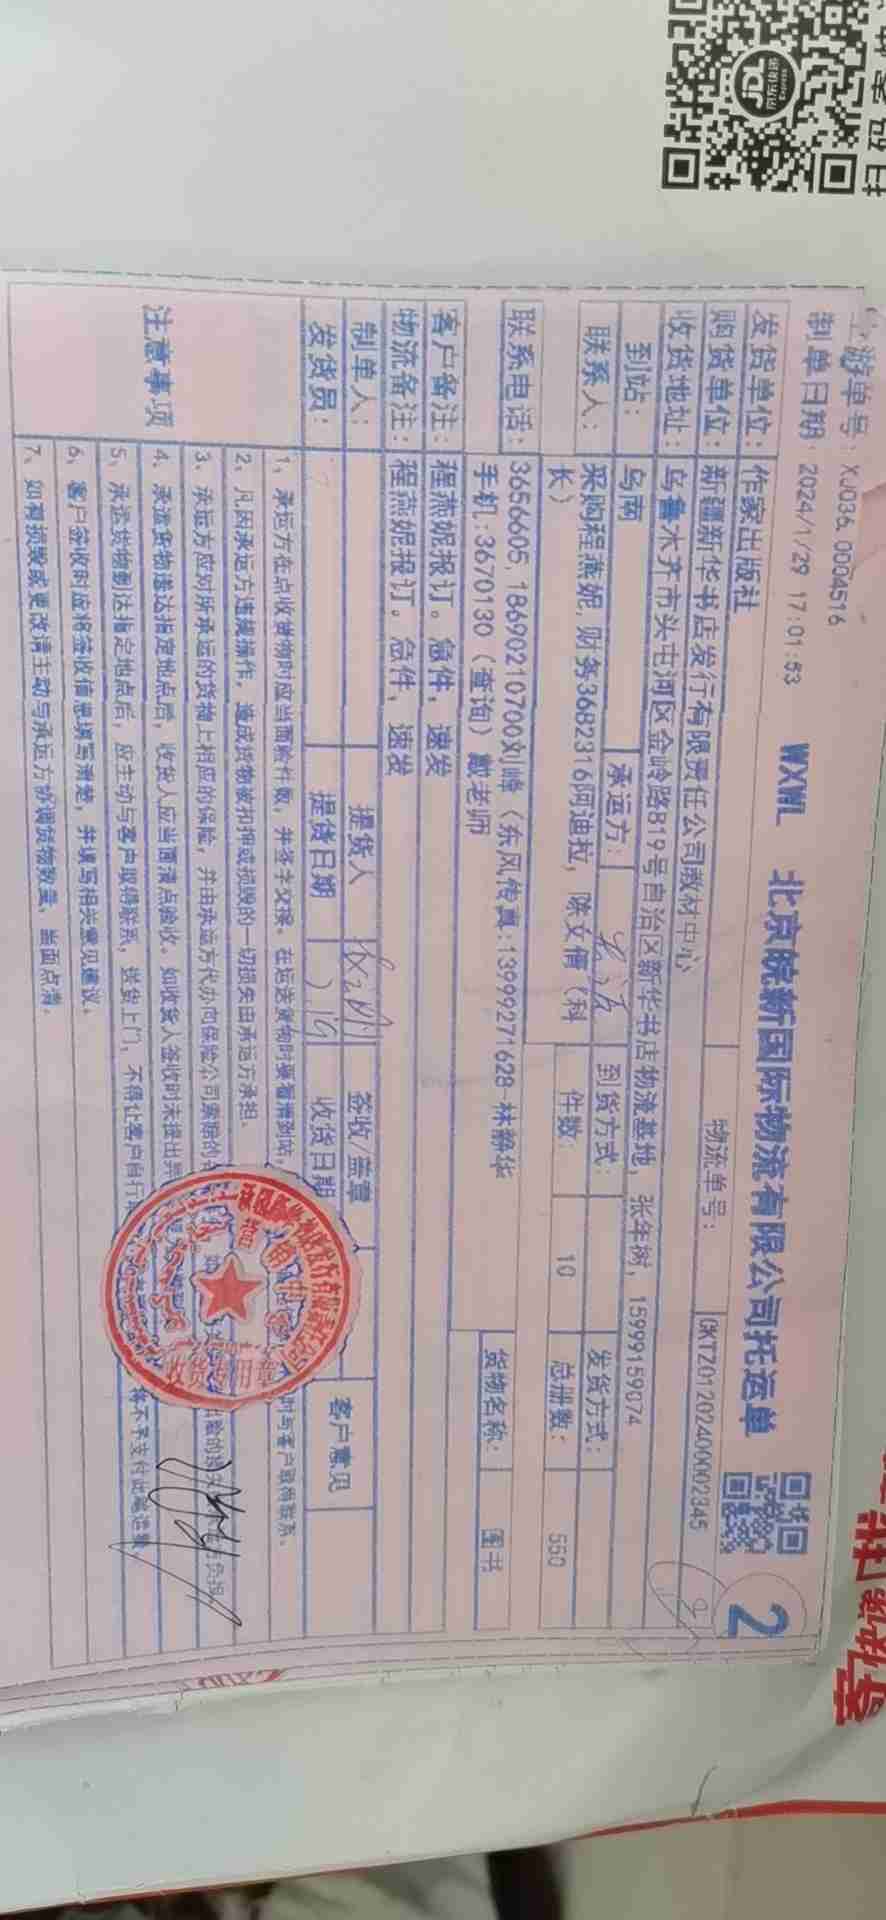 JDL
京东快递
Express
WXWL 北京皖新国际物流有限公司托运单
2
游单号: XJ036, 0004516
制单日期: 2024/1/29 17:01:53
物流单号: CKTZ01202400002345
发货单位: 作家出版社
购货单位: 新疆新华书店发行有限责任公司教材中心
收货地址: 乌鲁木齐市头屯河区金岭路819号自治区新华书店物流基地, 张年树, 15999159074
到站: 乌南 承运方: 到货方式: 发货方式:
联系人: 采购程燕妮, 财务3682316阿迪拉, 陈文倩（科长） 件数: 10 总册数: 550
联系电话: 3656605, 18690210700刘峰（东风传真:13999271628-林新华
手机:3670130（查询）戴老师 货物名称: 图书
客户备注: 程燕妮报订。急件, 速发
物流备注: 程燕妮报订。急件, 速发
制单人: 提货人 签收/盖章 客户意见
发货员: 提货日期 收货日期
注意事项
1、承运方在点收货物时应当面验件数, 并签字交接。在运送货物时要看清到站, 时与客户取得联系。
2、凡因承运方违规操作, 造成货物被扣押或损毁的一切损失由承运方承担.
3、承运方应对所承运的货物上相应的保险, 并由承运方代办向保险公司索赔的
4、承运货物送达指定地点后, 收货人应当面清点验收。如收货人签收时未提出异
5、承运货物到达指定地点后, 应主动与客户取得联系, 送货上门, 不得让客户自行 将不予支付此笔运费
6、客户签收时应将签收信息填写清楚, 并填写相关意见建议。
7、如有损毁或更改请主动与承运方协调货物数量, 当面点清.
收货专用章